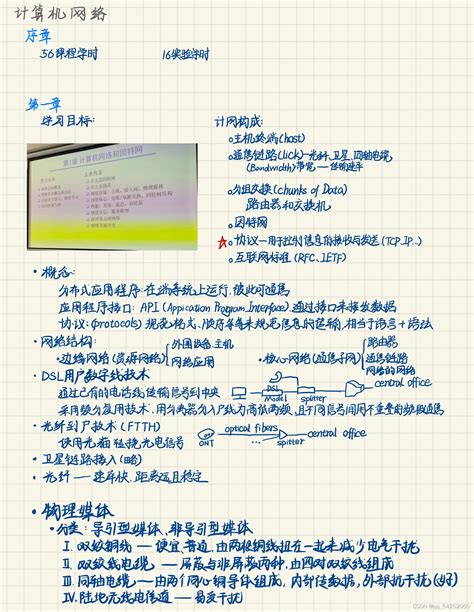 计算机网络
序章
36课程学时 16实验学时
第一章
学习目标:
第1章 计算机网络和因特网
计网构成:
主机终端(host)
通信链路(Click)—光纤、卫星、同轴电缆,
(Bandwidth)带宽—传输速率
分组交换(chunks of Data)
路由器和交换机
因特网
☆ 协议—用于控制信息的接收与发送(TCP.IP..)
互联网标准(RFC、IETF)
• 概念:
分布式应用程序:在端系统上运行,彼此可通信
应用程序接口: API (Appication Program Interface).通过接口来接发数据
协议:(protocols) 规范格式、顺序等等来规范信息的传输,相当于语言+语法
• 网络结构:
• 边缘网络(资源网络) 外围设备、主机 网络应用
• 核心网络(通信子网) 路由器 通信链路 网络的网络
• DSL用户数字线技术
通过已有的电话线传输信号到中央
DSL Model splitter central office
采用频分复用技术,用分离器分入户线为高低两频,且不同信号间用不重叠的频段通信
• 光纤到户技术 (FTTH)
使用光猫轻捷光电信号
ONT optical fibers splitter central office
• 卫星链路接入(略)
• 光纤—速率快,距离远且稳定
• 物理媒体
• 分类: 导引型媒体、非导引型媒体
I. 双绞铜线 — 便宜,普通,由两根铜线扭在一起来减少电气干扰
II. 双绞线电缆 — 屏蔽与非屏蔽两种,由四对双绞线组成
III. 同轴电缆 — 由两个同心铜导体组成,内部传数据,外部抗干扰(好)
IV. 陆地无线电信道 — 易受干扰